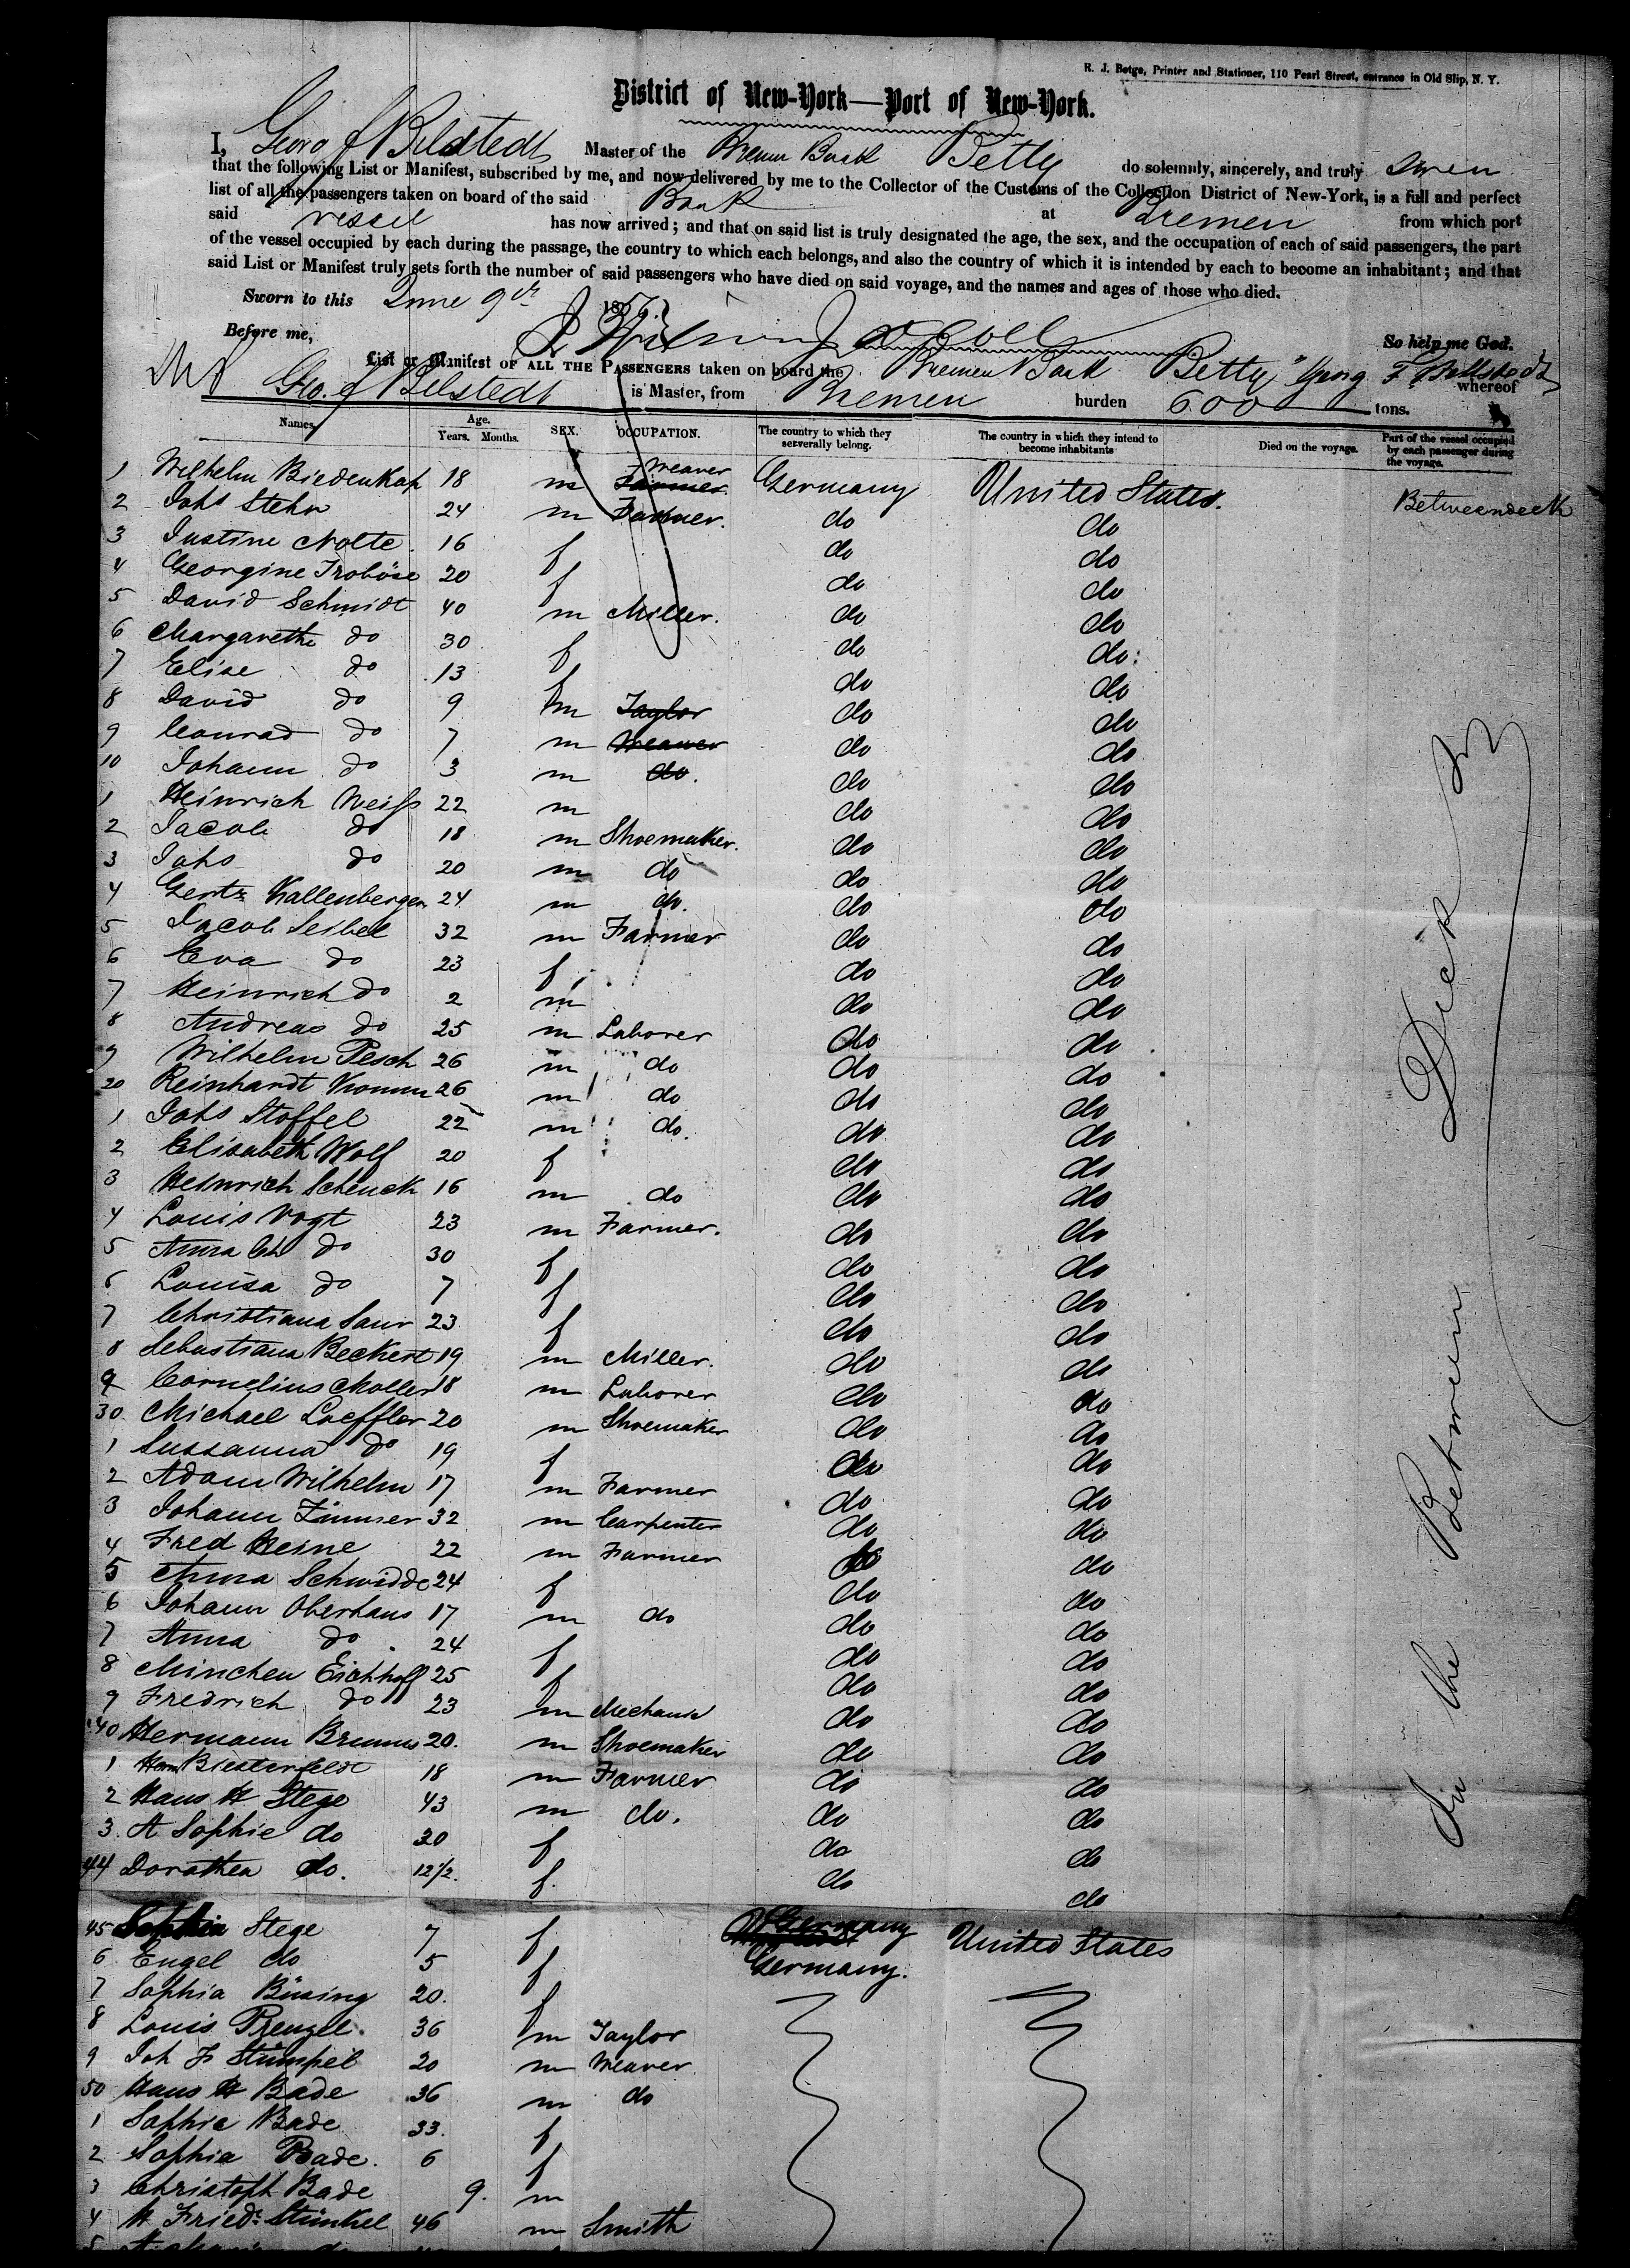 R. J. Betge, Printer and Stationer, 110 Pearl Street, entrance in Old Slip, N. Y.
District of New-York—Port of New-York.
I, Georg f Bilstedt Master of the Bremen Bark Betty do solemnly, sincerely, and truly swear
that the following List or Manifest, subscribed by me, and now delivered by me to the Collector of the Customs of the Collection District of New-York, is a full and perfect
list of all the passengers taken on board of the said Bark at Bremen from which port
said vessel has now arrived; and that on said list is truly designated the age, the sex, and the occupation of each of said passengers, the part
of the vessel occupied by each during the passage, the country to which each belongs, and also the country of which it is intended by each to become an inhabitant; and that
said List or Manifest truly sets forth the number of said passengers who have died on said voyage, and the names and ages of those who died.
Sworn to this June 9th 1857
Before me, So help me God.
List or Manifest OF ALL THE PASSENGERS taken on board the Bremen Bark Betty whereof
Geo. f Bilstedt is Master, from Bremen burden 600 tons.
Names Age. Years. Months. SEX. OCCUPATION. The country to which they serverally belong. The country in which they intend to become inhabitants Died on the voyage. Part of the vessel occupied by each passenger during the voyage.
1 Wilhelm Biedenkap 18 m Weaver Germany United States. Betweendeck
2 Johs Stehr 24 m Farmer. do do
3 Justine Nolte. 16 f do do
4 Georgine Troböse 20 f do do
5 David Schmidt 40 m Miller. do do
6 Margarethe do 30 f do do
7 Elise do 13 f do do
8 David do 9 m Taylor do do
9 Conrad do 7 m Weaver do do
10 Johann do 3 m do. do do
1 Heinrich Weifs 22 m do do
2 Jacob do 18 m Shoemaker. do do
3 Johs do 20 m do do do
4 Gertz Kallenberger 24 m do. do do
5 Jacob Seibel 32 m Farmer do do
6 Eva do 23 f do do
7 Heinrich do 2 m do do
8 Andreas do 25 m Laborer do do
9 Wilhelm Pesch 26 m do do do
20 Reinhardt Kromm 26 m do do do
1 Johs Stoffel 22 m do. do do
2 Elisabeth Wolf 20 f do do
3 Heinrich Schenck 16 m do do do
4 Louis Vogt 23 m Farmer. do do
5 Anna Cth do 30 f do do
6 Louisa do 7 f do do
7 Christiana Saur 23 f do do
8 Sebastiana Beckert 19 m Miller. do do
9 Cornelius Moller 18 m Laborer do do
30. Michael Loeffler 20 m Shoemaker do do
1 Sussanna do 19 f do do
2 Adam Wilhelm 17 m Farmer do do
3 Johann Zimmer 32 m Carpenter do do
4 Fred Heine 22 m Farmer do do
5 Anna Schwidde 24 f do do
6 Johann Oberhaus 17 m do do do
7 Anna do 24 f do do
8 Minchen Eichhoff 25 f do do
9 Fredrich do 23 m Mechanic do do
40 Hermann Brunns 20. m Shoemaker do do
1 Herm Biesterfeldt 18 m Farmer do do
2 Haus H Stege 43 m do. do do
3. A Sophie do 30 f do do
44 Dorathea do. 12 1/2. f. do do
45 Sophia Stege 7 f Germany United States
6 Engel do 5 f Germany.
7 Sophia Büsing 20. f
8 Louis Prengel. 36 m Taylor
9 Joh F Stümpel 20 m Weaver
50 Hans H Bade 36 m do
1 Sophia Bade 33. f
2 Sophia Bade. 6 f
3 Christoph Bade 9. m
4 H Fried: Stünkel 46 m Smith
In the Between Deck